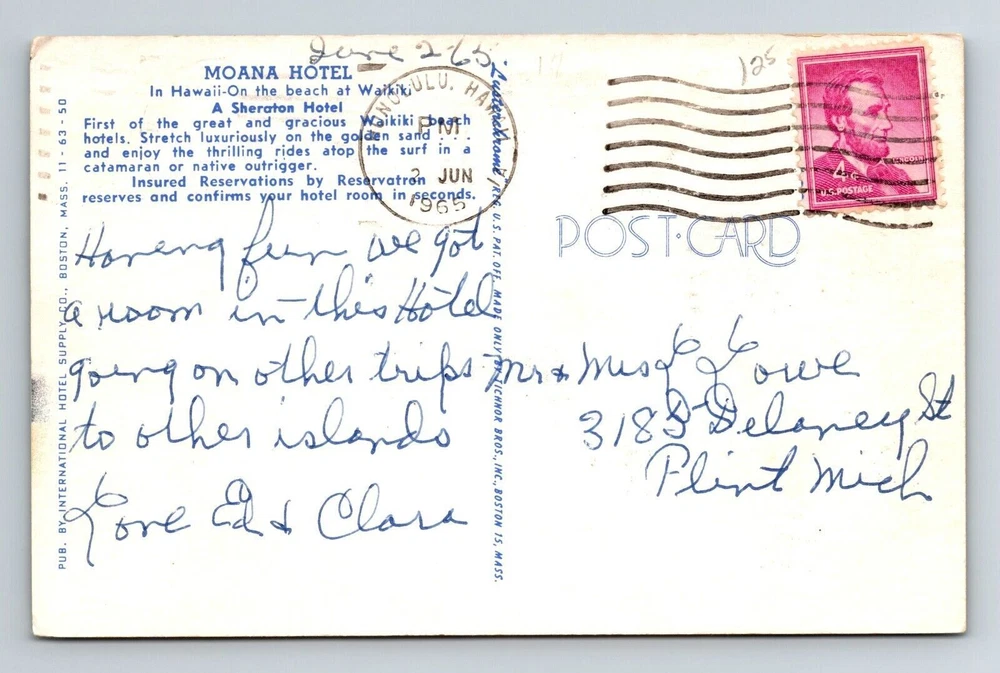 June 2-65
MOANA HOTEL
In Hawaii-On the beach at Waikiki
A Sheraton Hotel
First of the great and gracious Waikiki beach
hotels. Stretch luxuriously on the golden sand
and enjoy the thrilling rides atop the surf in a
catamaran or native outrigger.
Insured Reservations by Reservatron
reserves and confirms your hotel room in seconds.
HONOLULU, HAWAII
PM
2 JUN
1965
125
LINCOLN
4¢
U.S. POSTAGE
POST·CARD
Having fun we got
a room in this Hotel
going on other trips
to other islands
Love Ed & Clara
Mr & Mrs L Lowe
3183 Delaney St
Flint Mich
PUB. BY INTERNATIONAL HOTEL SUPPLY CO., BOSTON, MASS. 11-63-50
Lusterchrome REG. U.S. PAT. OFF. MADE ONLY BY TICHNOR BROS., INC., BOSTON 15, MASS.